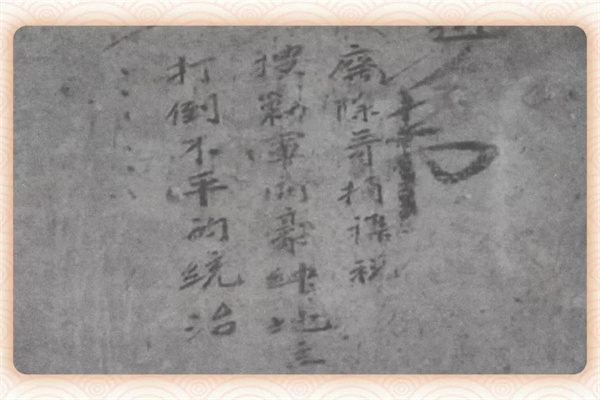 廢除苛捐襍税
搜勦軍閥豪紳地主
打倒不平的統治